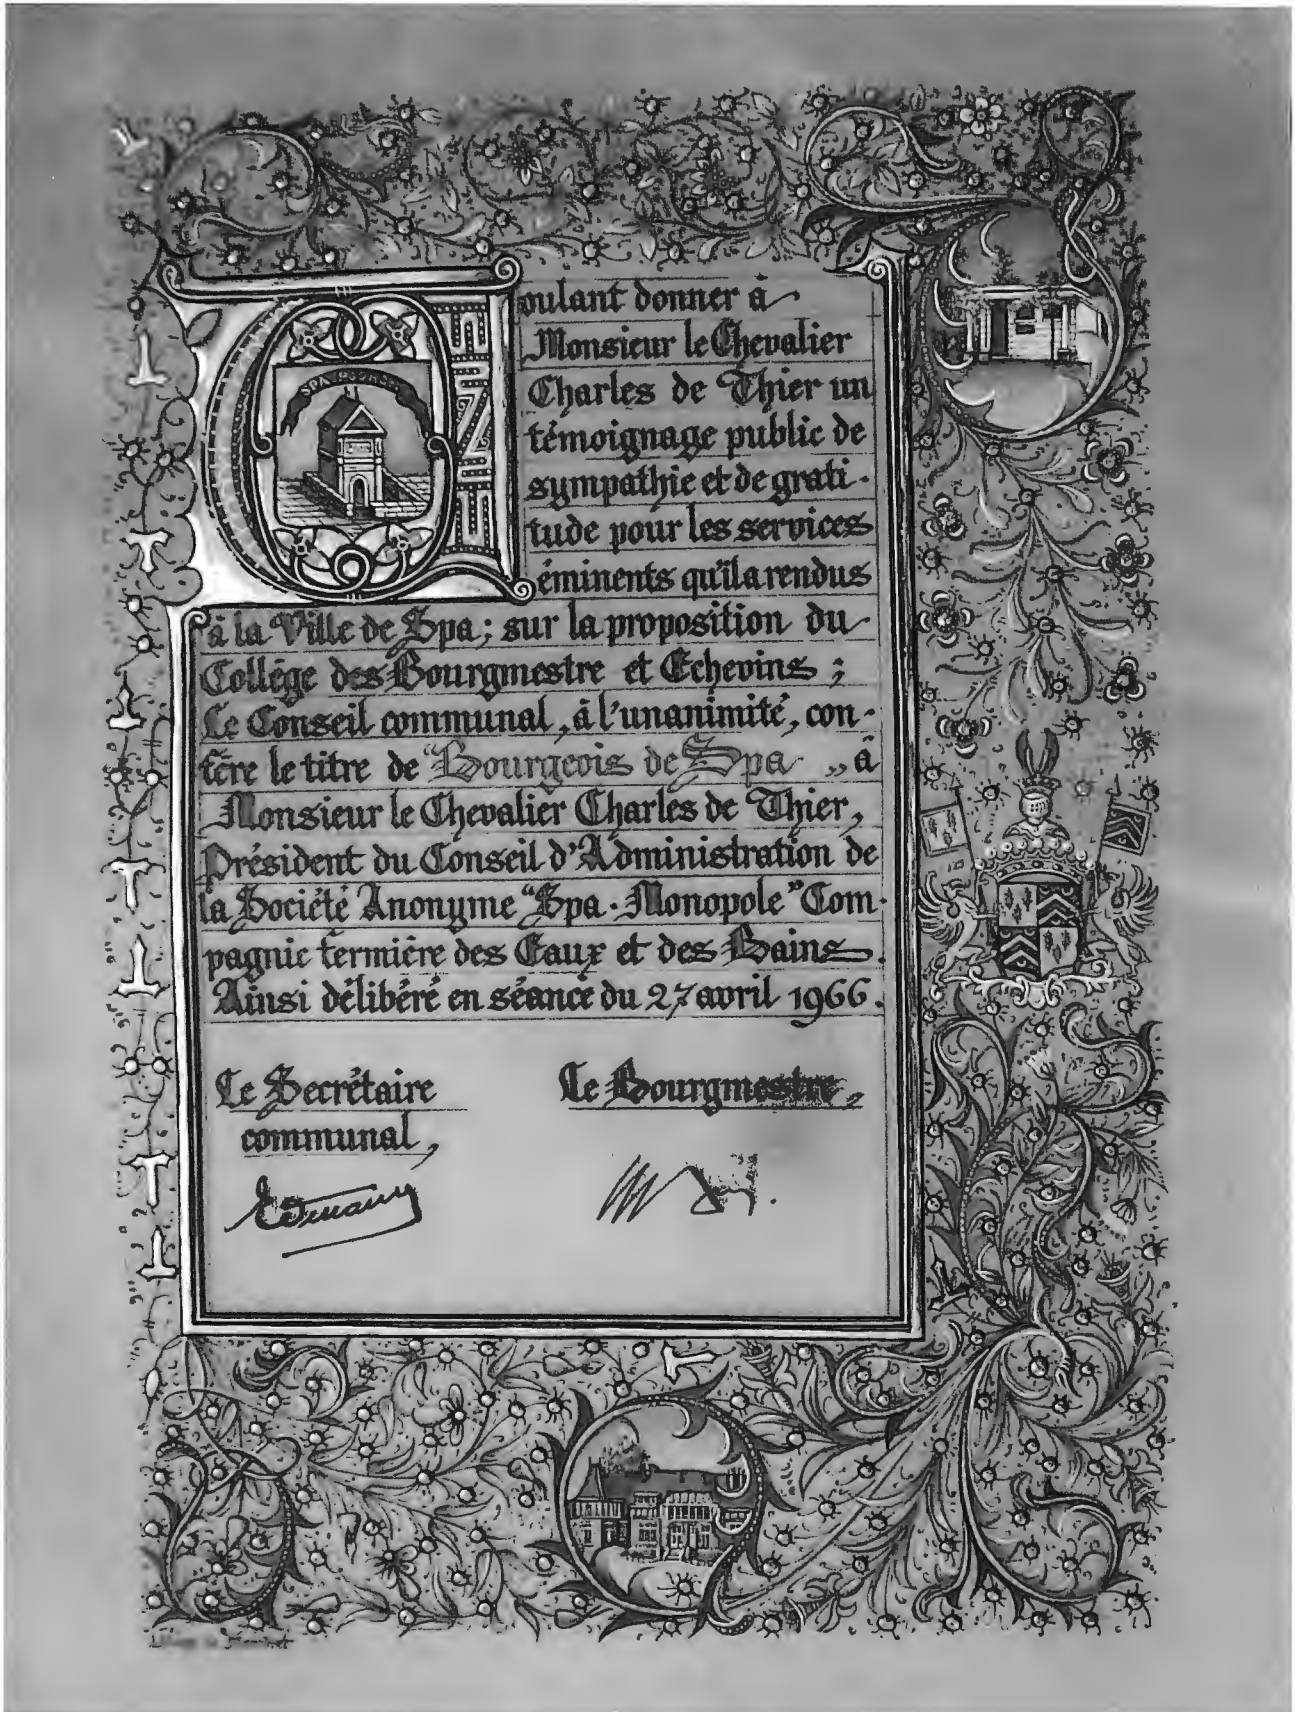 Voulant donner à
Monsieur le Chevalier
Charles de Thier un
témoignage public de
sympathie et de grati-
tude pour les services
éminents qu'il a rendus
à la Ville de Spa; sur la proposition du
Collège des Bourgmestre et Echevins;
Le Conseil communal, à l'unanimité, con-
fère le titre de "Bourgeois de Spa„ à
Monsieur le Chevalier Charles de Thier,
Président du Conseil d'Administration de
la Société Anonyme "Spa-Monopole" Com-
pagnie fermière des Eaux et des Bains.
Ainsi délibéré en séance du 27 avril 1966.
Le Secrétaire
communal,
Le Bourgmestre,
SPA